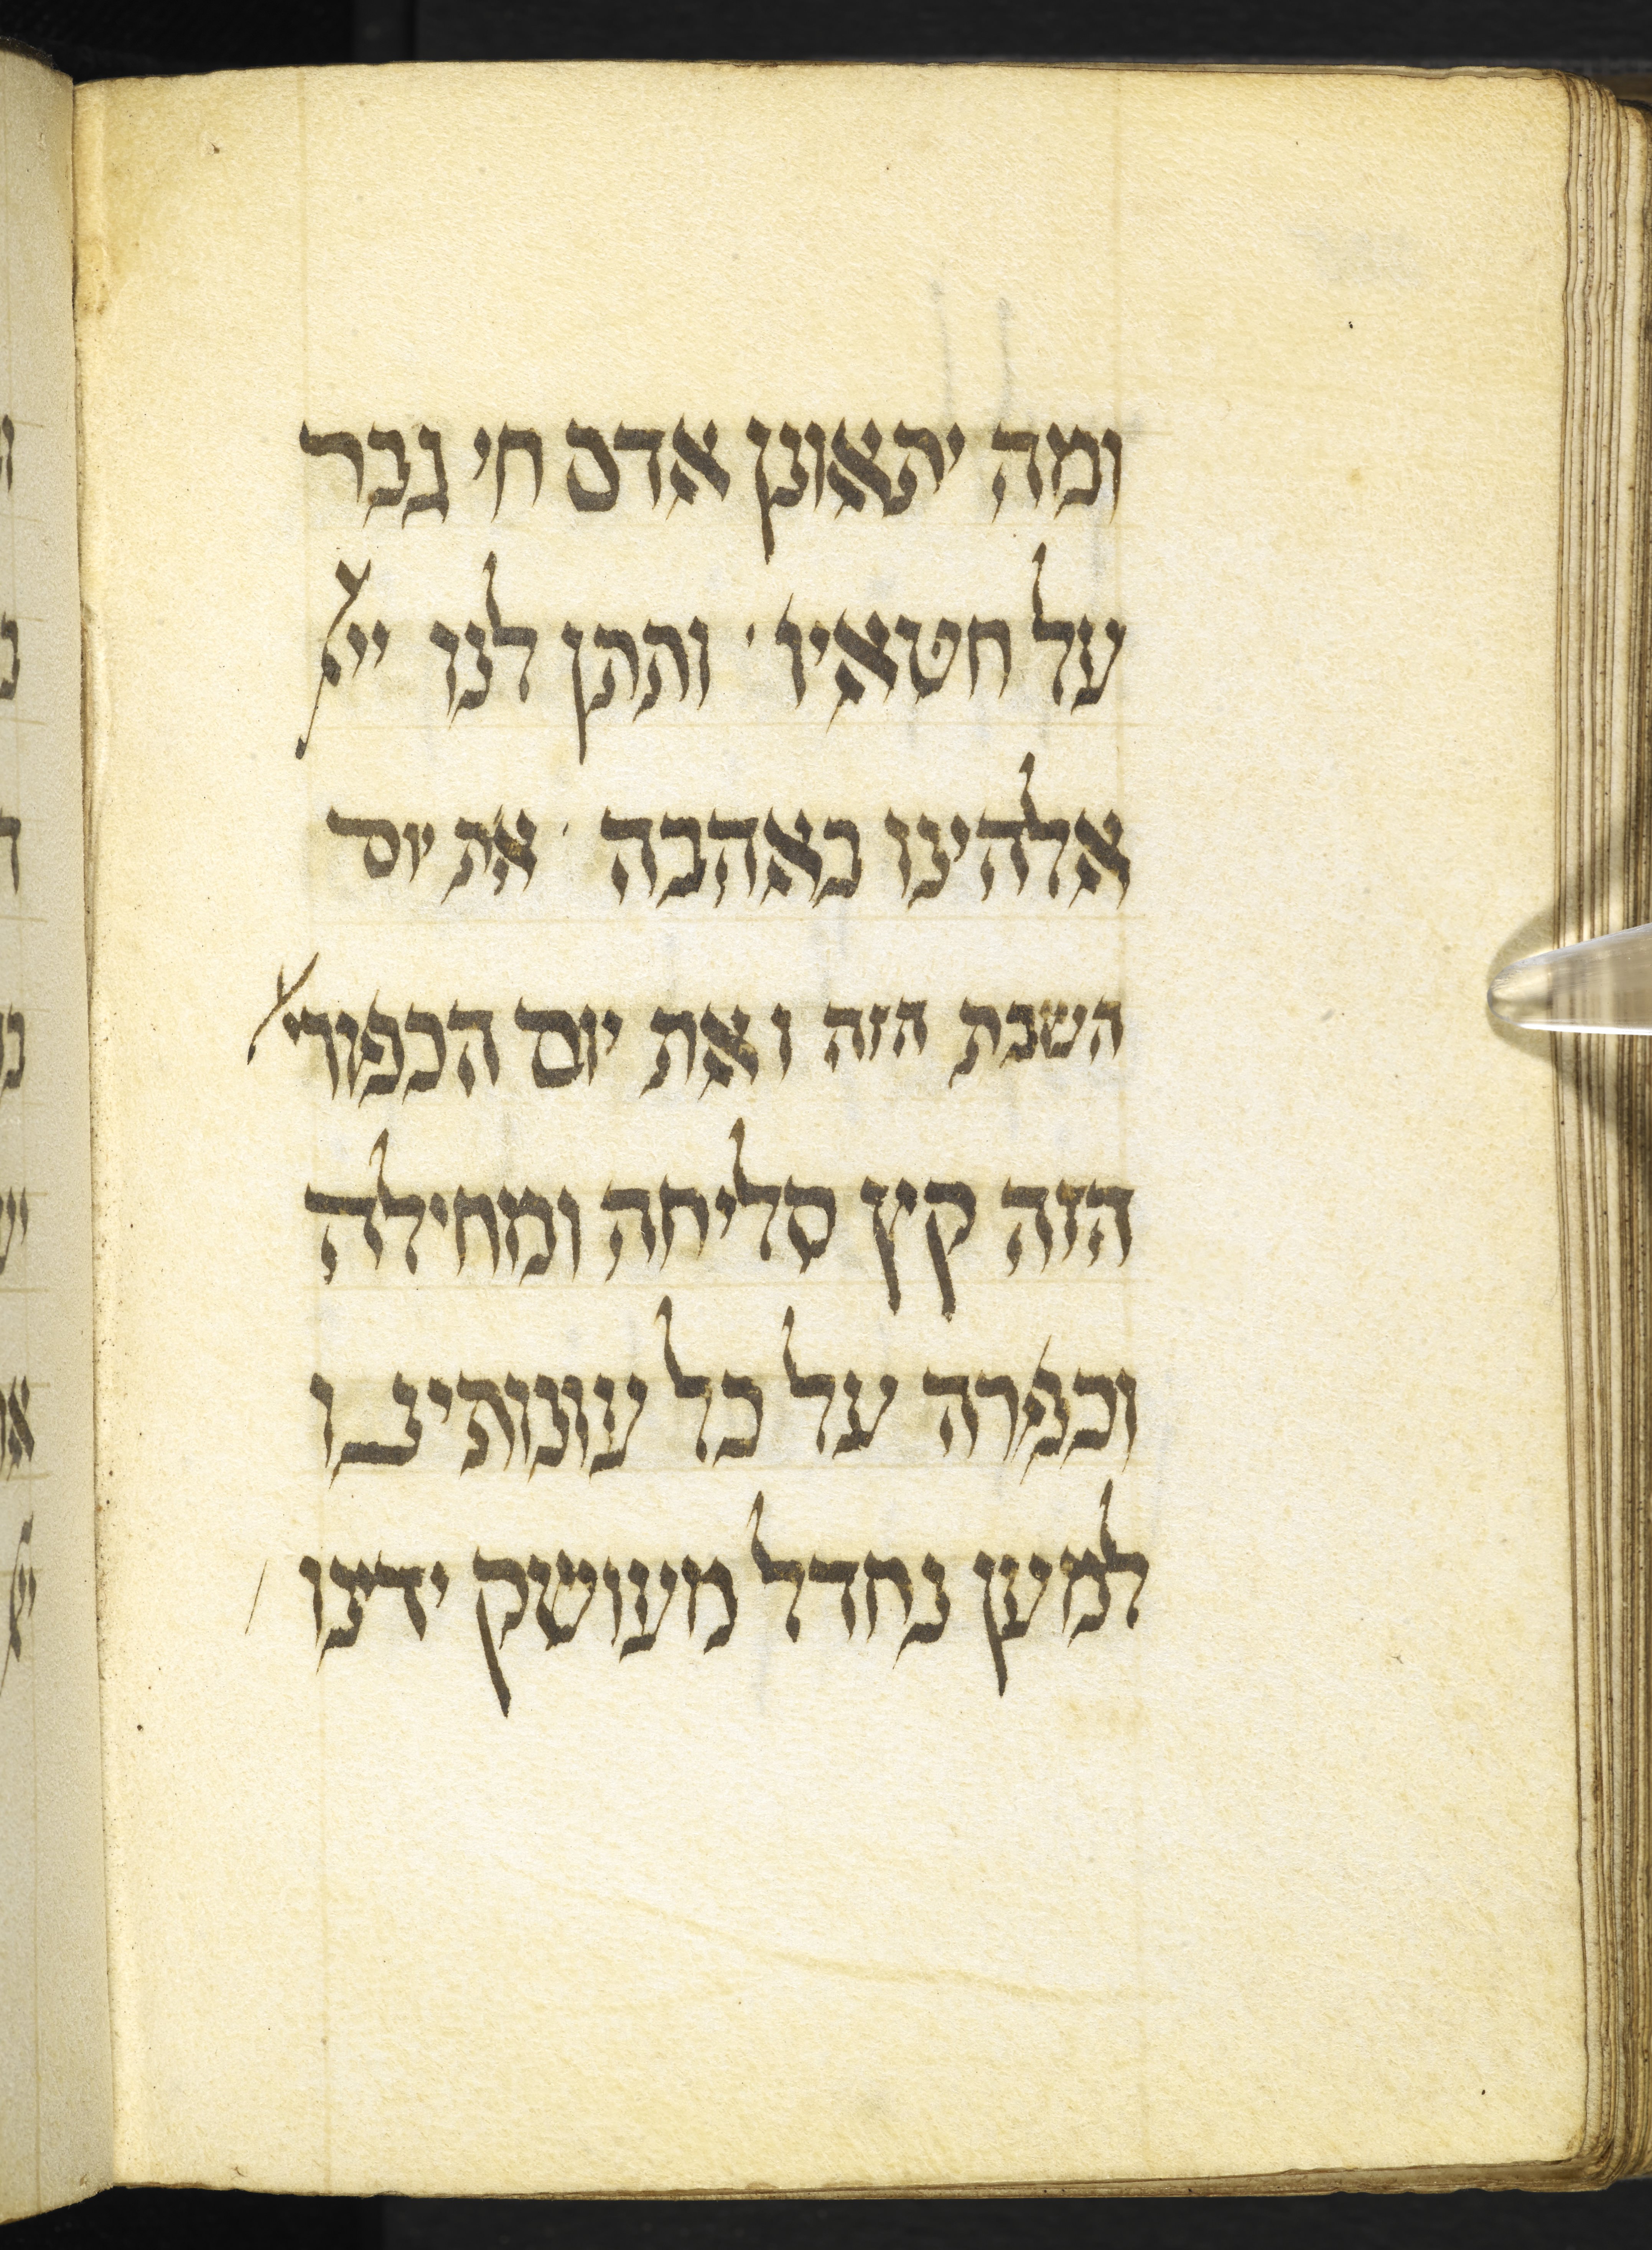 ומה יתאונן אדם חי גבר
על חטאיו ׳ ותתן לנו ייא
אלהינו באהבה ׳ את יום
השבת הזה ואת יום הכפורי
הזה קץ סליחה ומחילה
וכפרה על כל עונותינו
למען נחדל מעושק ידינו